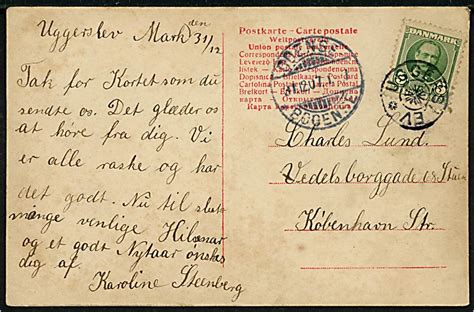 Uggerslev Mark den 31/12
Tak for Kortet som du
sendte os. Det glæder os
at høre fra dig. Vi
er alle raske og har
det godt. Nu til slut
mange venlige Hilsener
og et godt Nytaar ønskes
dig af. Karoline Steenberg
Postkarte - Carte postale
Weltpostverein
Union postale
Correspondenzkarte
Dopisnice
Cartolina postale
Brefkort
DANMARK
UGGERSLEV
ODENSE
31.12.07
BOGENSE
Charles Lund.
Vedelsborggade
København Str.